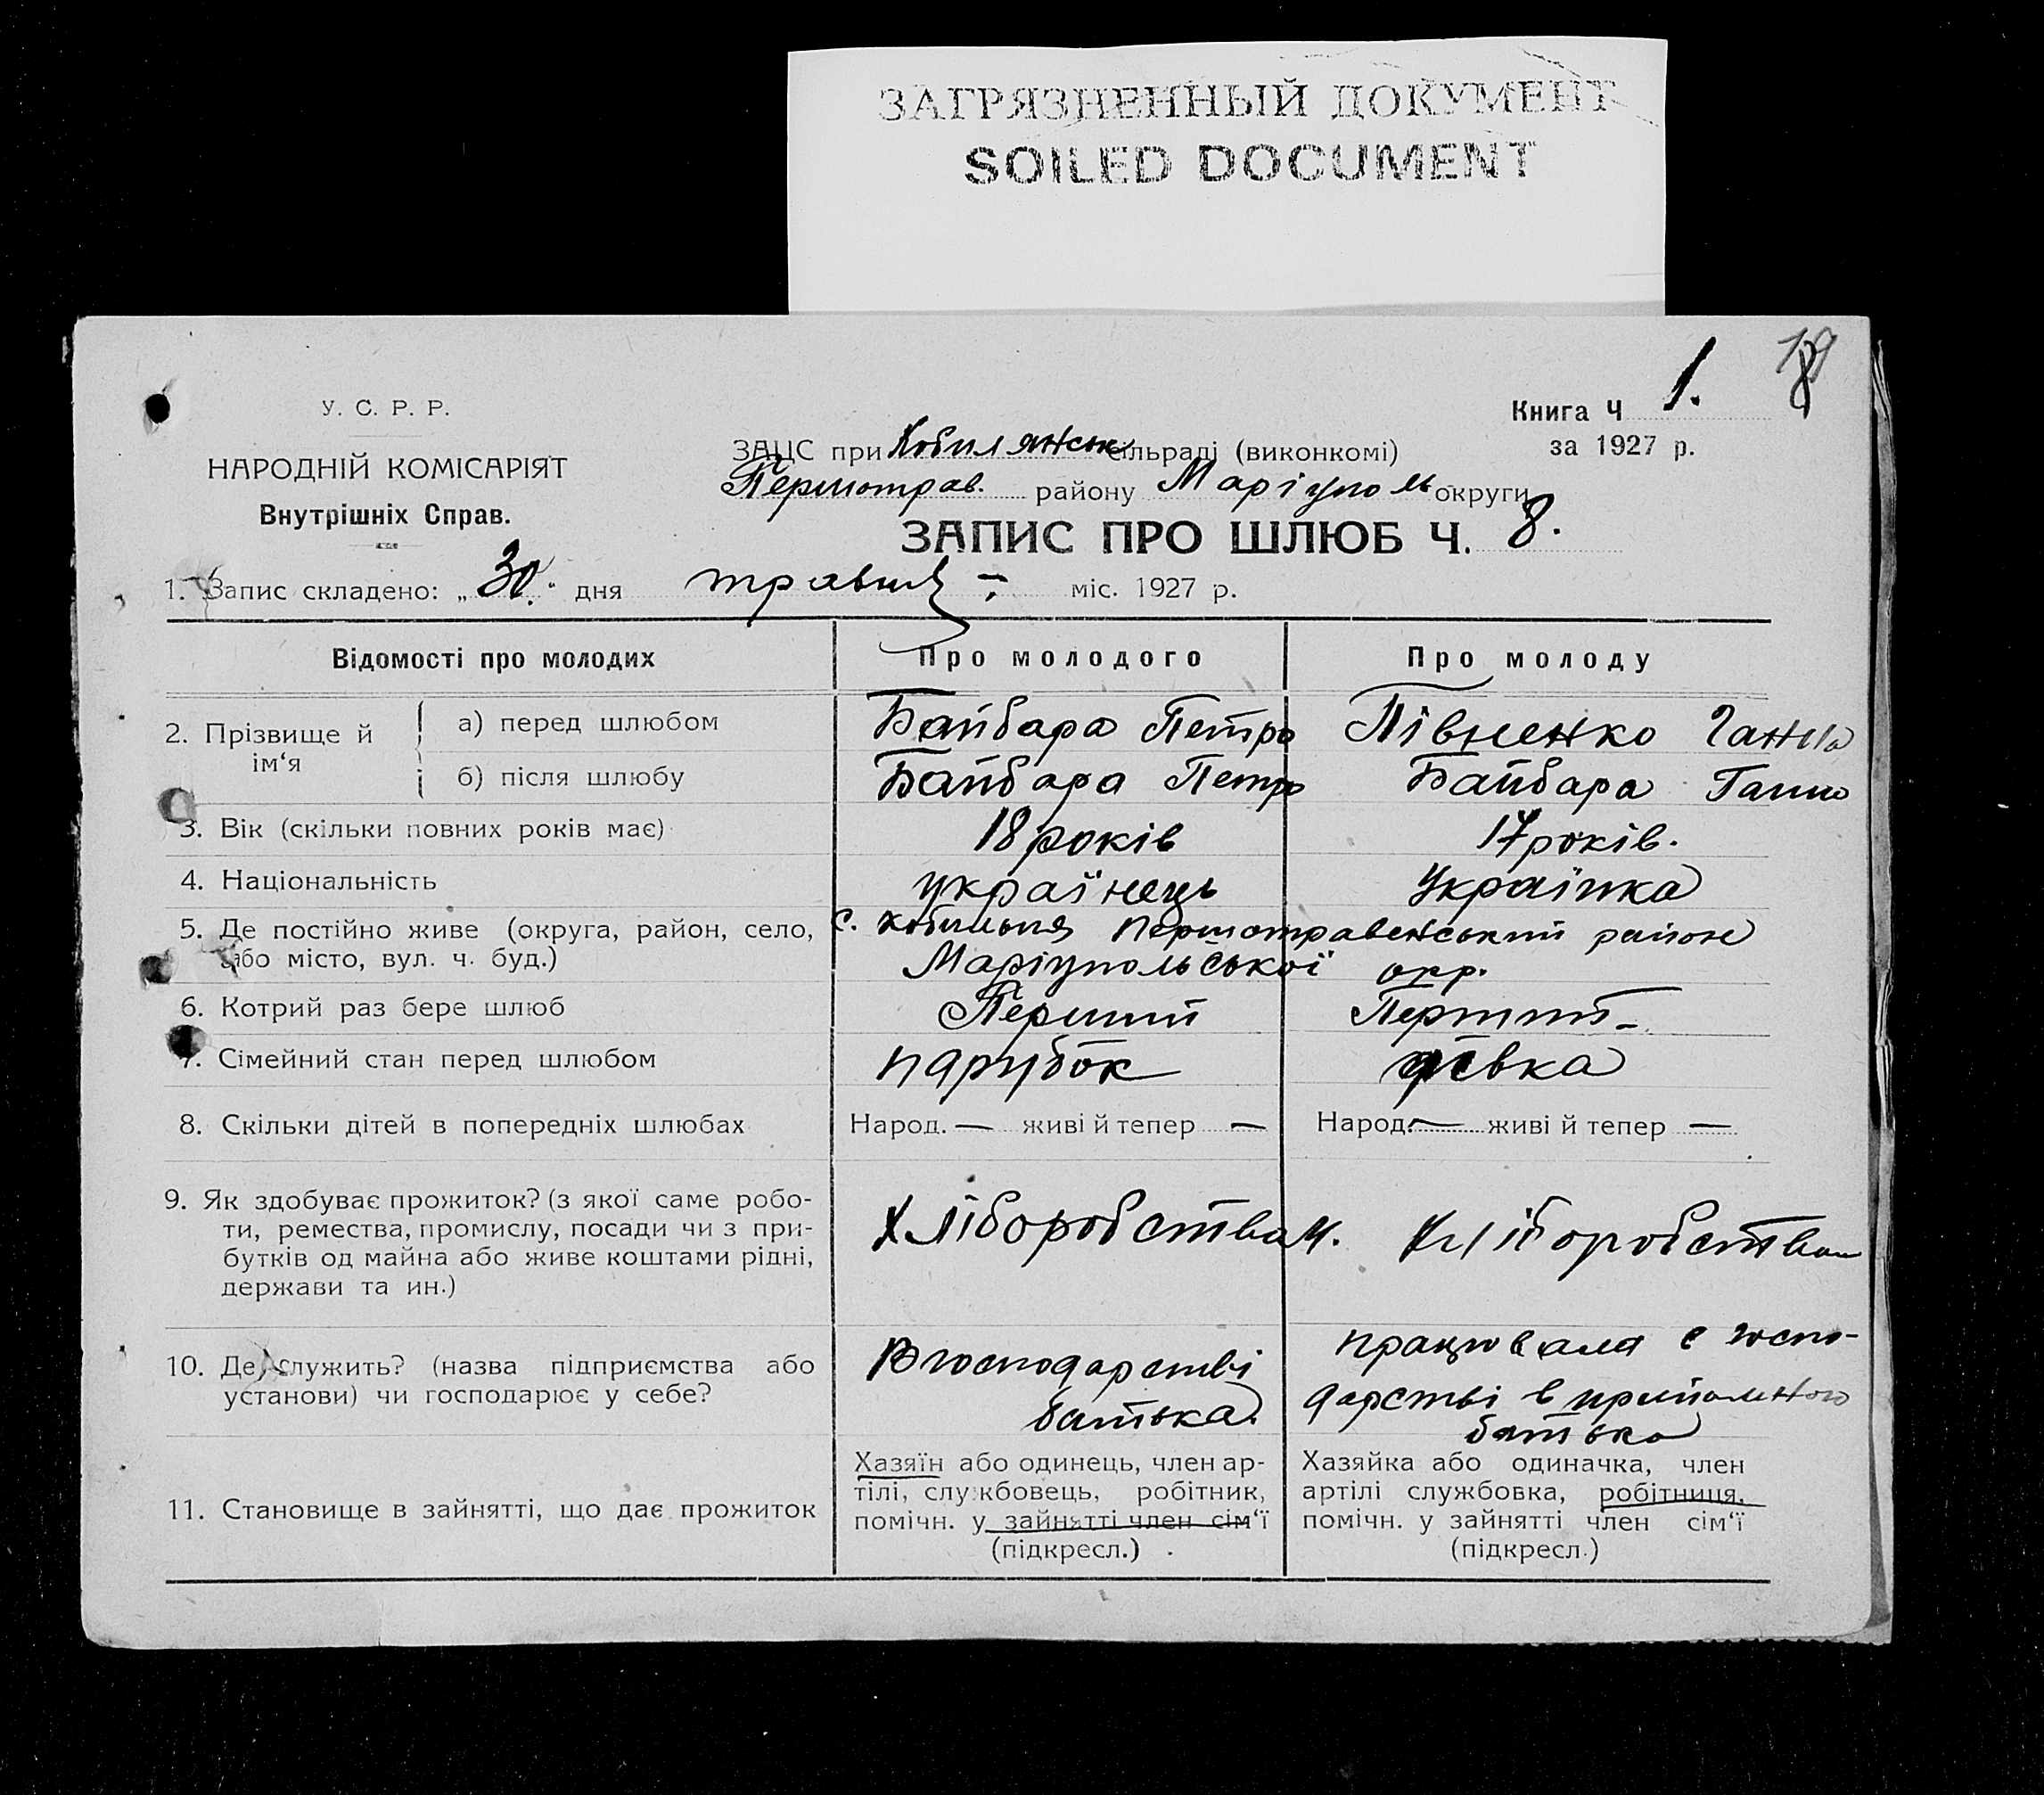 ЗАГРЯЗНЕННЫЙ ДОКУМЕНТ
SOILED DOCUMENT
У. С. Р. Р.
НАРОДНІЙ КОМІСАРІЯТ
Внутрішніх Справ.
Книга Ч 1.
за 1927 р.
ЗАЦС при Кобилянськ сільраді (виконкомі)
Першотрав. району Маріуполь округи
ЗАПИС ПРО ШЛЮБ Ч. 8.
1. Запис складено: „30." дня травня міс. 1927 р.
Відомості про молодих Про молодого Про молоду
2. Прізвище й ім‘я
а) перед шлюбом Байбара Петро Півненко Ганна
б) після шлюбу Байбара Петро Байбара Ганна
3. Вік (скільки повних років має) 18 років 17 років.
4. Національність українець Українка
5. Де постійно живе (округа, район, село, с. Кобильня Першотравенський район
або місто, вул. ч. буд.) Маріупольської окр.
6. Котрий раз бере шлюб Перший Перший
7. Сімейний стан перед шлюбом парубок дівка
8. Скільки дітей в попередніх шлюбах Народ. — живі й тепер — Народ. — живі й тепер —
9. Як здобуває прожиток? (з якої саме робо-
ти, ремества, промислу, посади чи з при-
бутків од майна або живе коштами рідні,
держави та ин.)
Хліборобствам. Хліборобством
10. Де служить? (назва підприємства або
установи) чи господарює у себе?
В господарстві
батька.
працювала в госпо-
дарстві в
батька
11. Становище в зайнятті, що дає прожиток
Хазяїн або одинець, член ар-
тілі, службовець, робітник,
помічн. у зайнятті член сім‘ї
(підкресл.)
Хазяйка або одиначка, член
артілі службовка, робітниця,
помічн. у зайнятті член сім‘ї
(підкресл.)